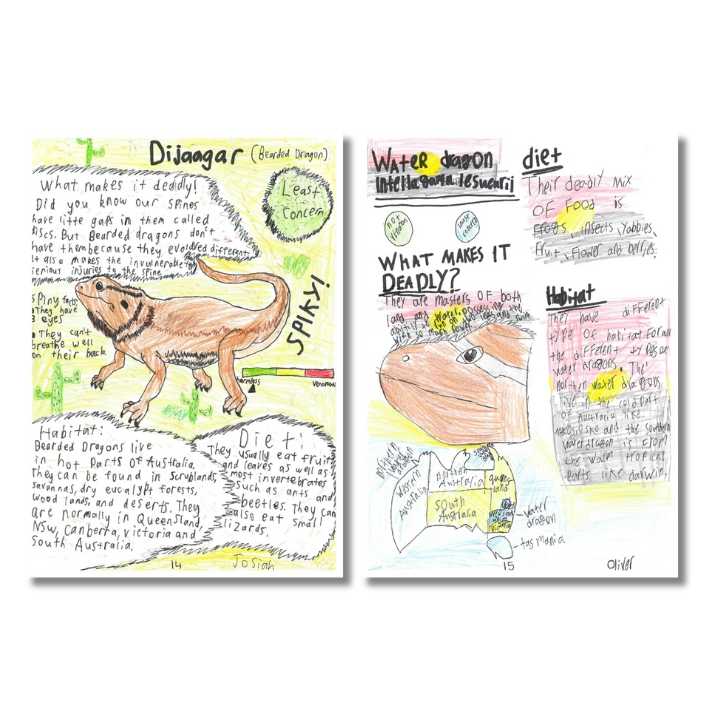 Dijaagar (Bearded Dragon)
What makes it deddly!
Did you know our spines
have litte gaps in them called
Discs. But Bearded dragons don't
have them because they evolved different.
It also makes the invulnerable
Least
Concern
Spiny facts
They have
3 eyes
They can't
breathe well
on their back
SPIKY!
Harmless
Venomous
Habitat:
Bearded Dragons live
in hot Parts of Australia.
They can be found in Scrublands,
Savannas, dry eucalypt forests,
wood lands, and deserts. They
are normally in Queensland,
NSW, Canberra, victoria and
South Australia.
Diet:
They usually eat fruit
and leaves as well as
most invertebrates
such as ants and
beetles. They can
also eat small
lizards.
14
Josiah
Water dragon
Intellagama lesuerii
not
least
concern
WHAT MAKES IT
DEADLY?
They are masters OF both
land and water,
diet
Their deadly mix
OF Food is
Frogs, insects, yabbies,
Fruit, Flower and berries.
Habitat
They have different
type OF habitat For all
the different types of
water dragons. The
northin water dragons
live in the cold part
OF Australia like
and the Southern
water dragon is From
the warm tropical
parts like darwin.
Western
Australia
Northern
Australia
queens
land
South
Australia
water
dragon
tasmania
15
Oliver